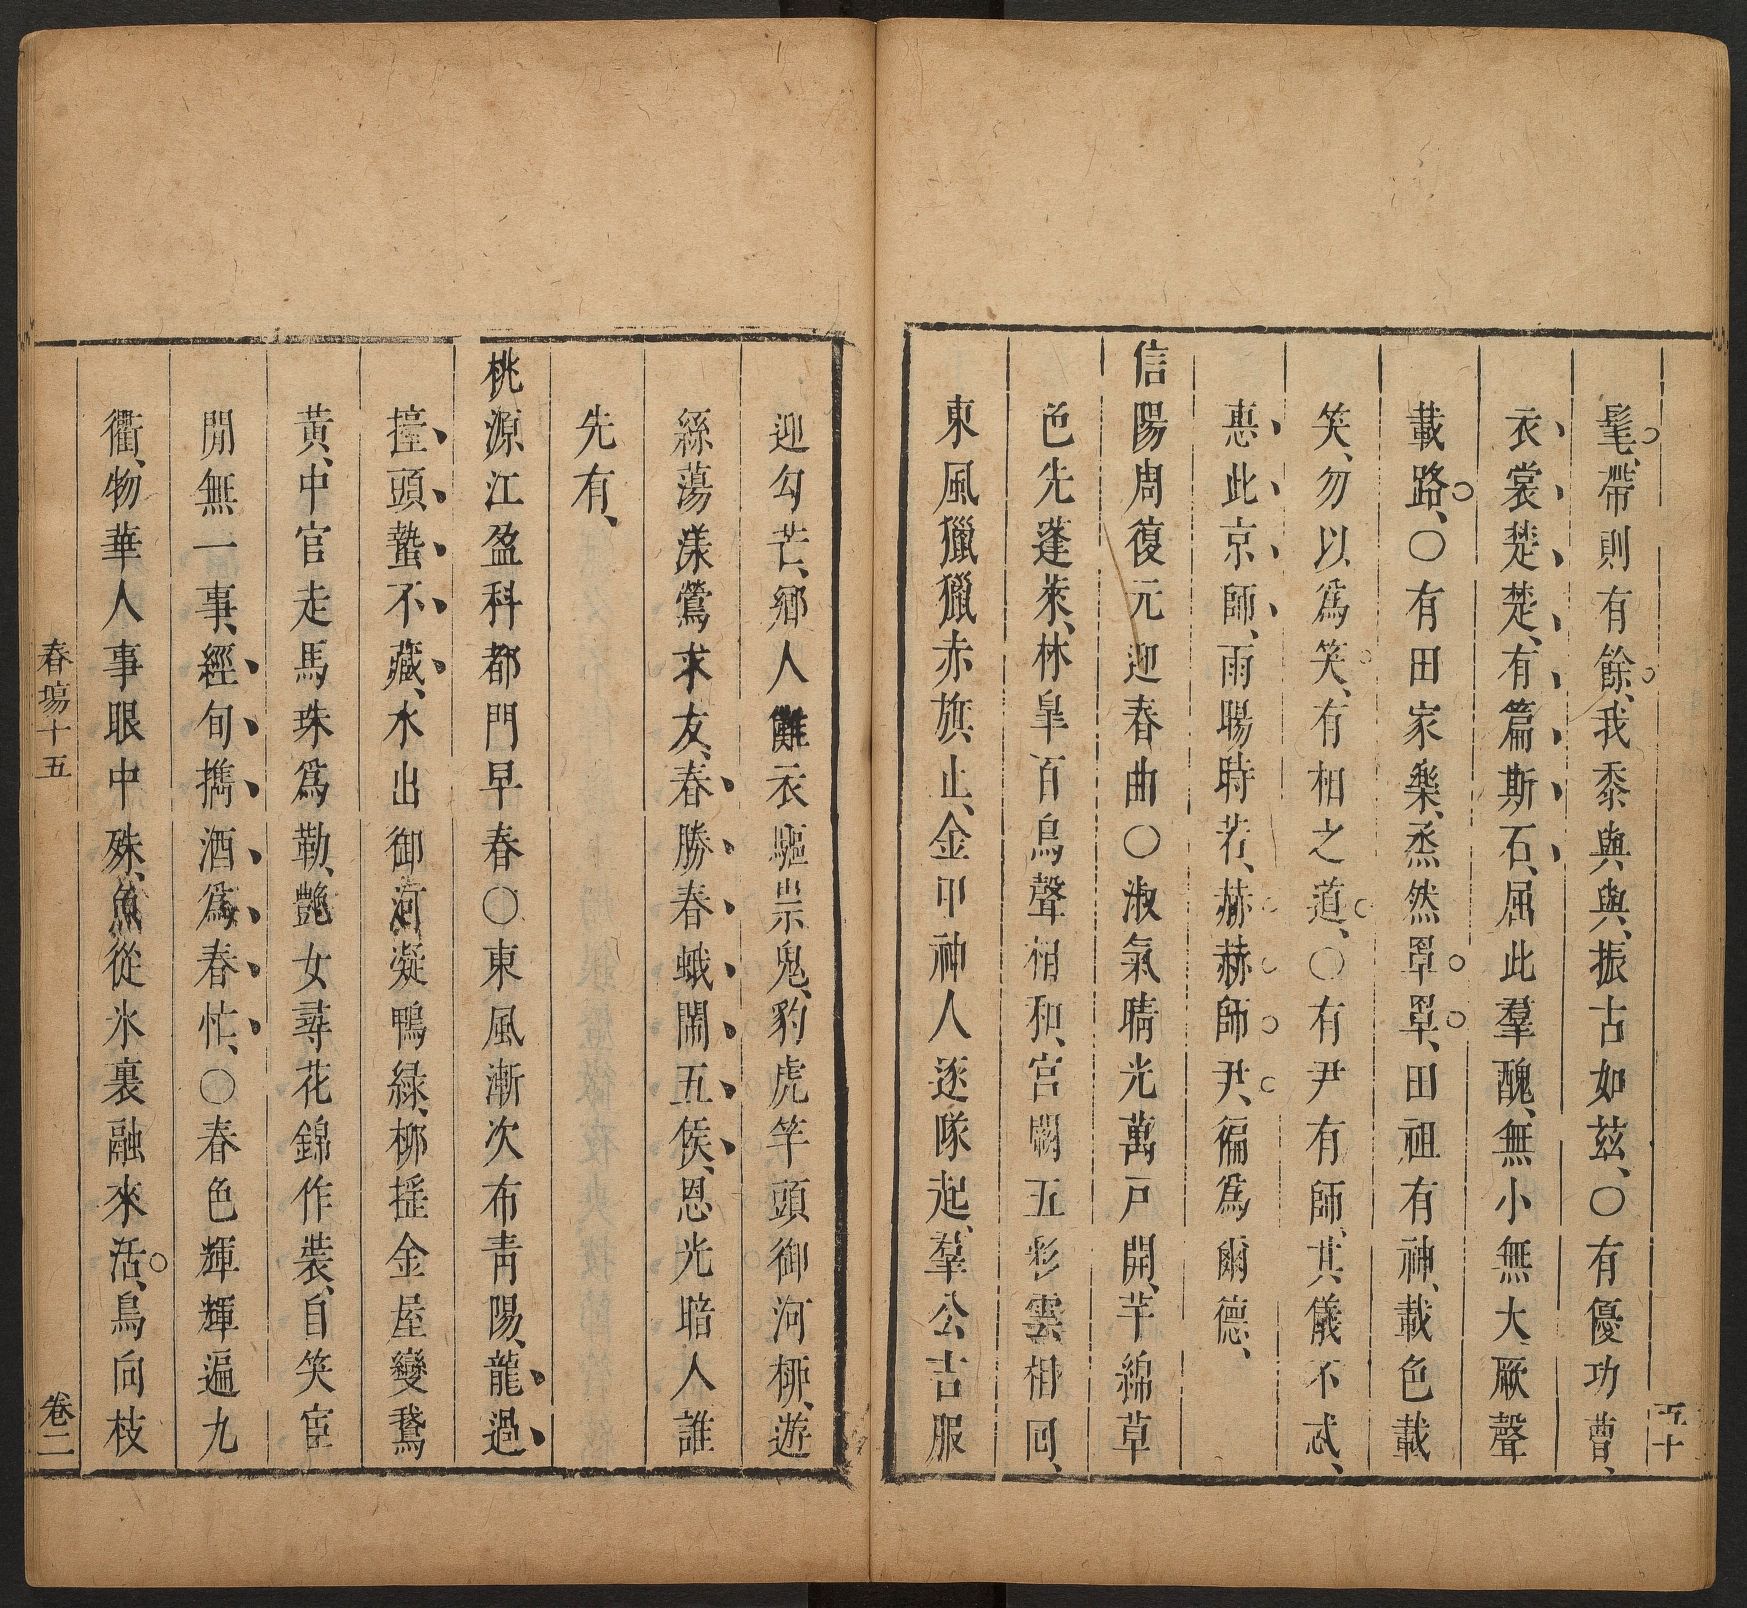 髦、帶則有餘、我黍與與、振古如茲、○有優功曹、
衣裳楚楚、有篇斯石、屈此羣醜、無小無大、厥聲
載路、○有田家樂、烝然罩罩、田祖有神、載色載
笑、勿以爲笑、有相之道、○有尹有師、其儀不忒、
惠此京師、雨暘時若、赫赫師尹、徧爲爾德、
信陽周復元迎春曲○淑氣晴光萬戸開、芊綿草
色先蓬萊、林皐百鳥聲相和、宮闕五彩雲相回、
東風獵獵赤旗止、金甲神人逐隊起、羣公吉服
迎勾芒、鄉人儺衣驅祟鬼、豹虎竿頭御河栁、遊
絲蕩漾鶯求友、春勝春蛾閙五侯、恩光暗人誰
先有、
桃源江盈科都門早春○東風漸次布靑陽、龍過
擡頭蟄不藏、水出御河凝鴨綠、栁揺金屋變鵞
黃、中官走馬珠爲勒、艶女尋花錦作裝、自笑宦
閒無一事、經旬擕酒爲春忙、○春色輝輝遍九
衢、物華人事眼中殊、魚從氷裏融來活、鳥向枝
春塲十五
卷二
五十